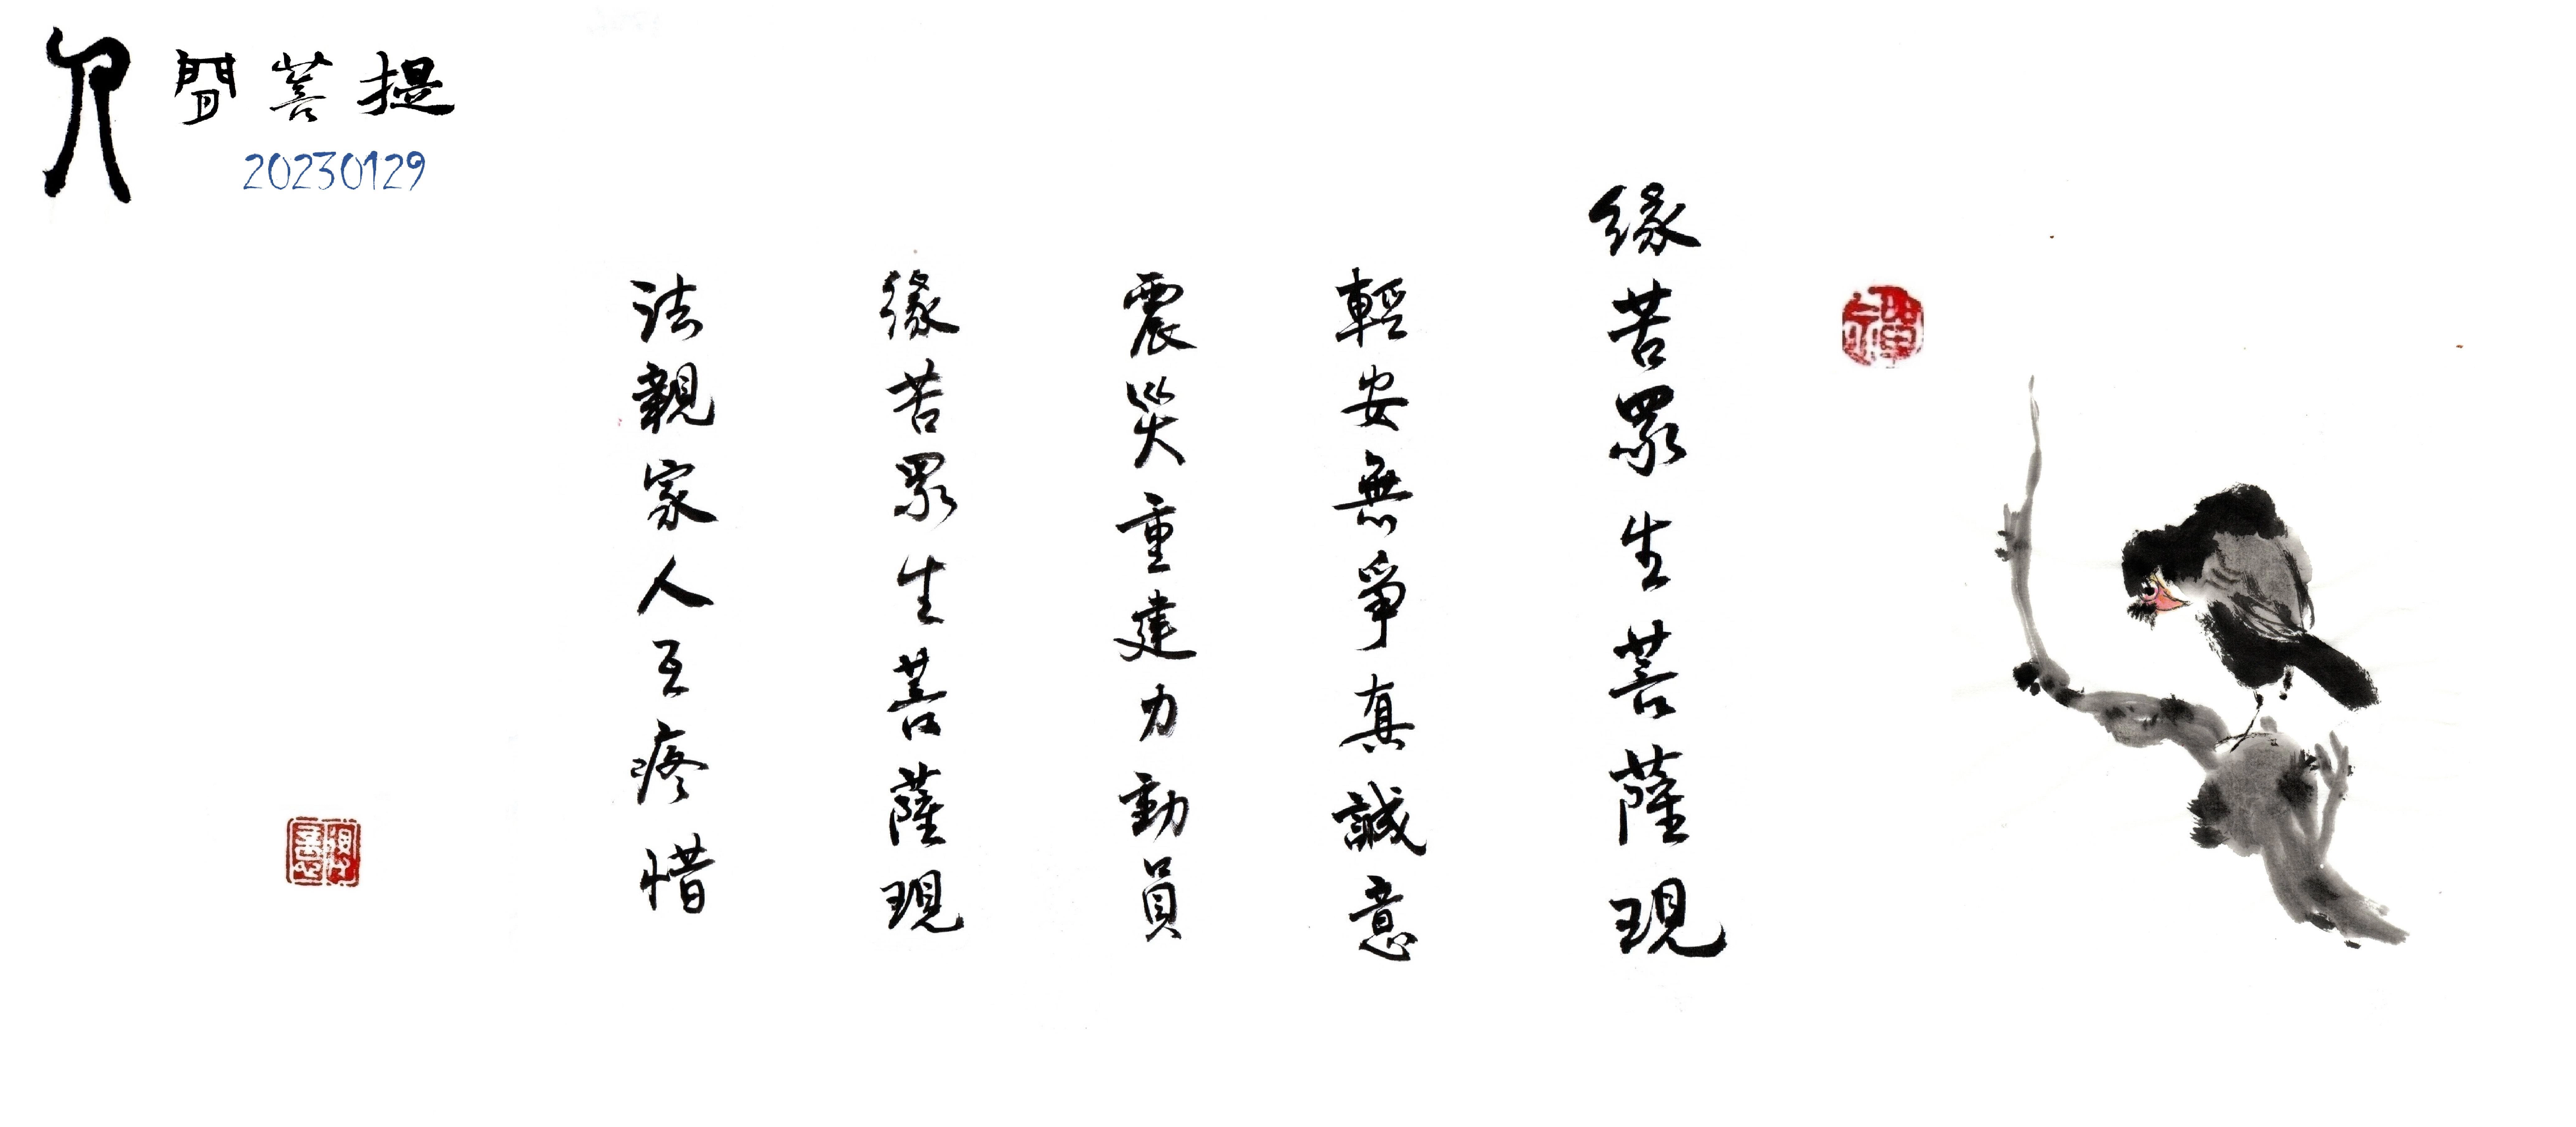 人間菩提
20230129
緣苦眾生菩薩現
輕安無爭真誠意
震災重建力動員
緣苦眾生菩薩現
法親家人互疼惜